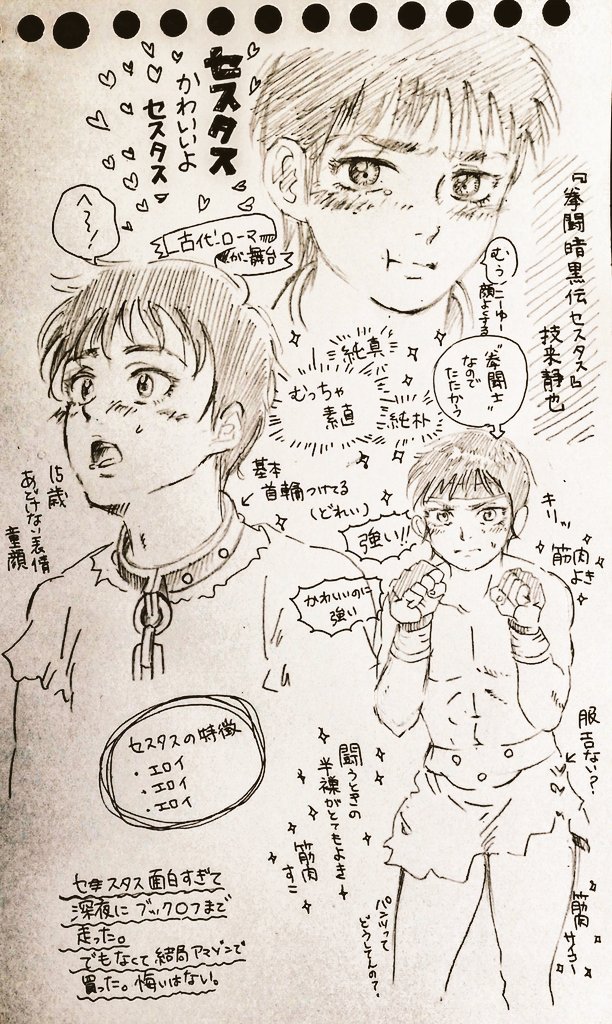 セスタス
かわいいよ
セスタス
「拳闘暗黒伝セスタス」
技来静也
へぇ!
古代ローマ
が舞台
むうっ
こーゆー
顔よくする
純真
むっちゃ
素直
純朴
"拳闘士"
なので
たたかう
15歳
あどけない表情
童顔
基本
首輪つけてる
(どれい)
強い!!
かわいいのに
強い
キリッ
筋肉
よき
服エロない?
セスタスの特徴
・エロイ
・エロイ
・エロイ
闘うときの
半裸がとてもよき
筋肉
すこ
パンツって
どうしてんの?
筋肉
サイコー
セスタス面白すぎて
深夜にブックオフまで
走った。
でもなくて結局アマゾンで
買った。悔いはない。